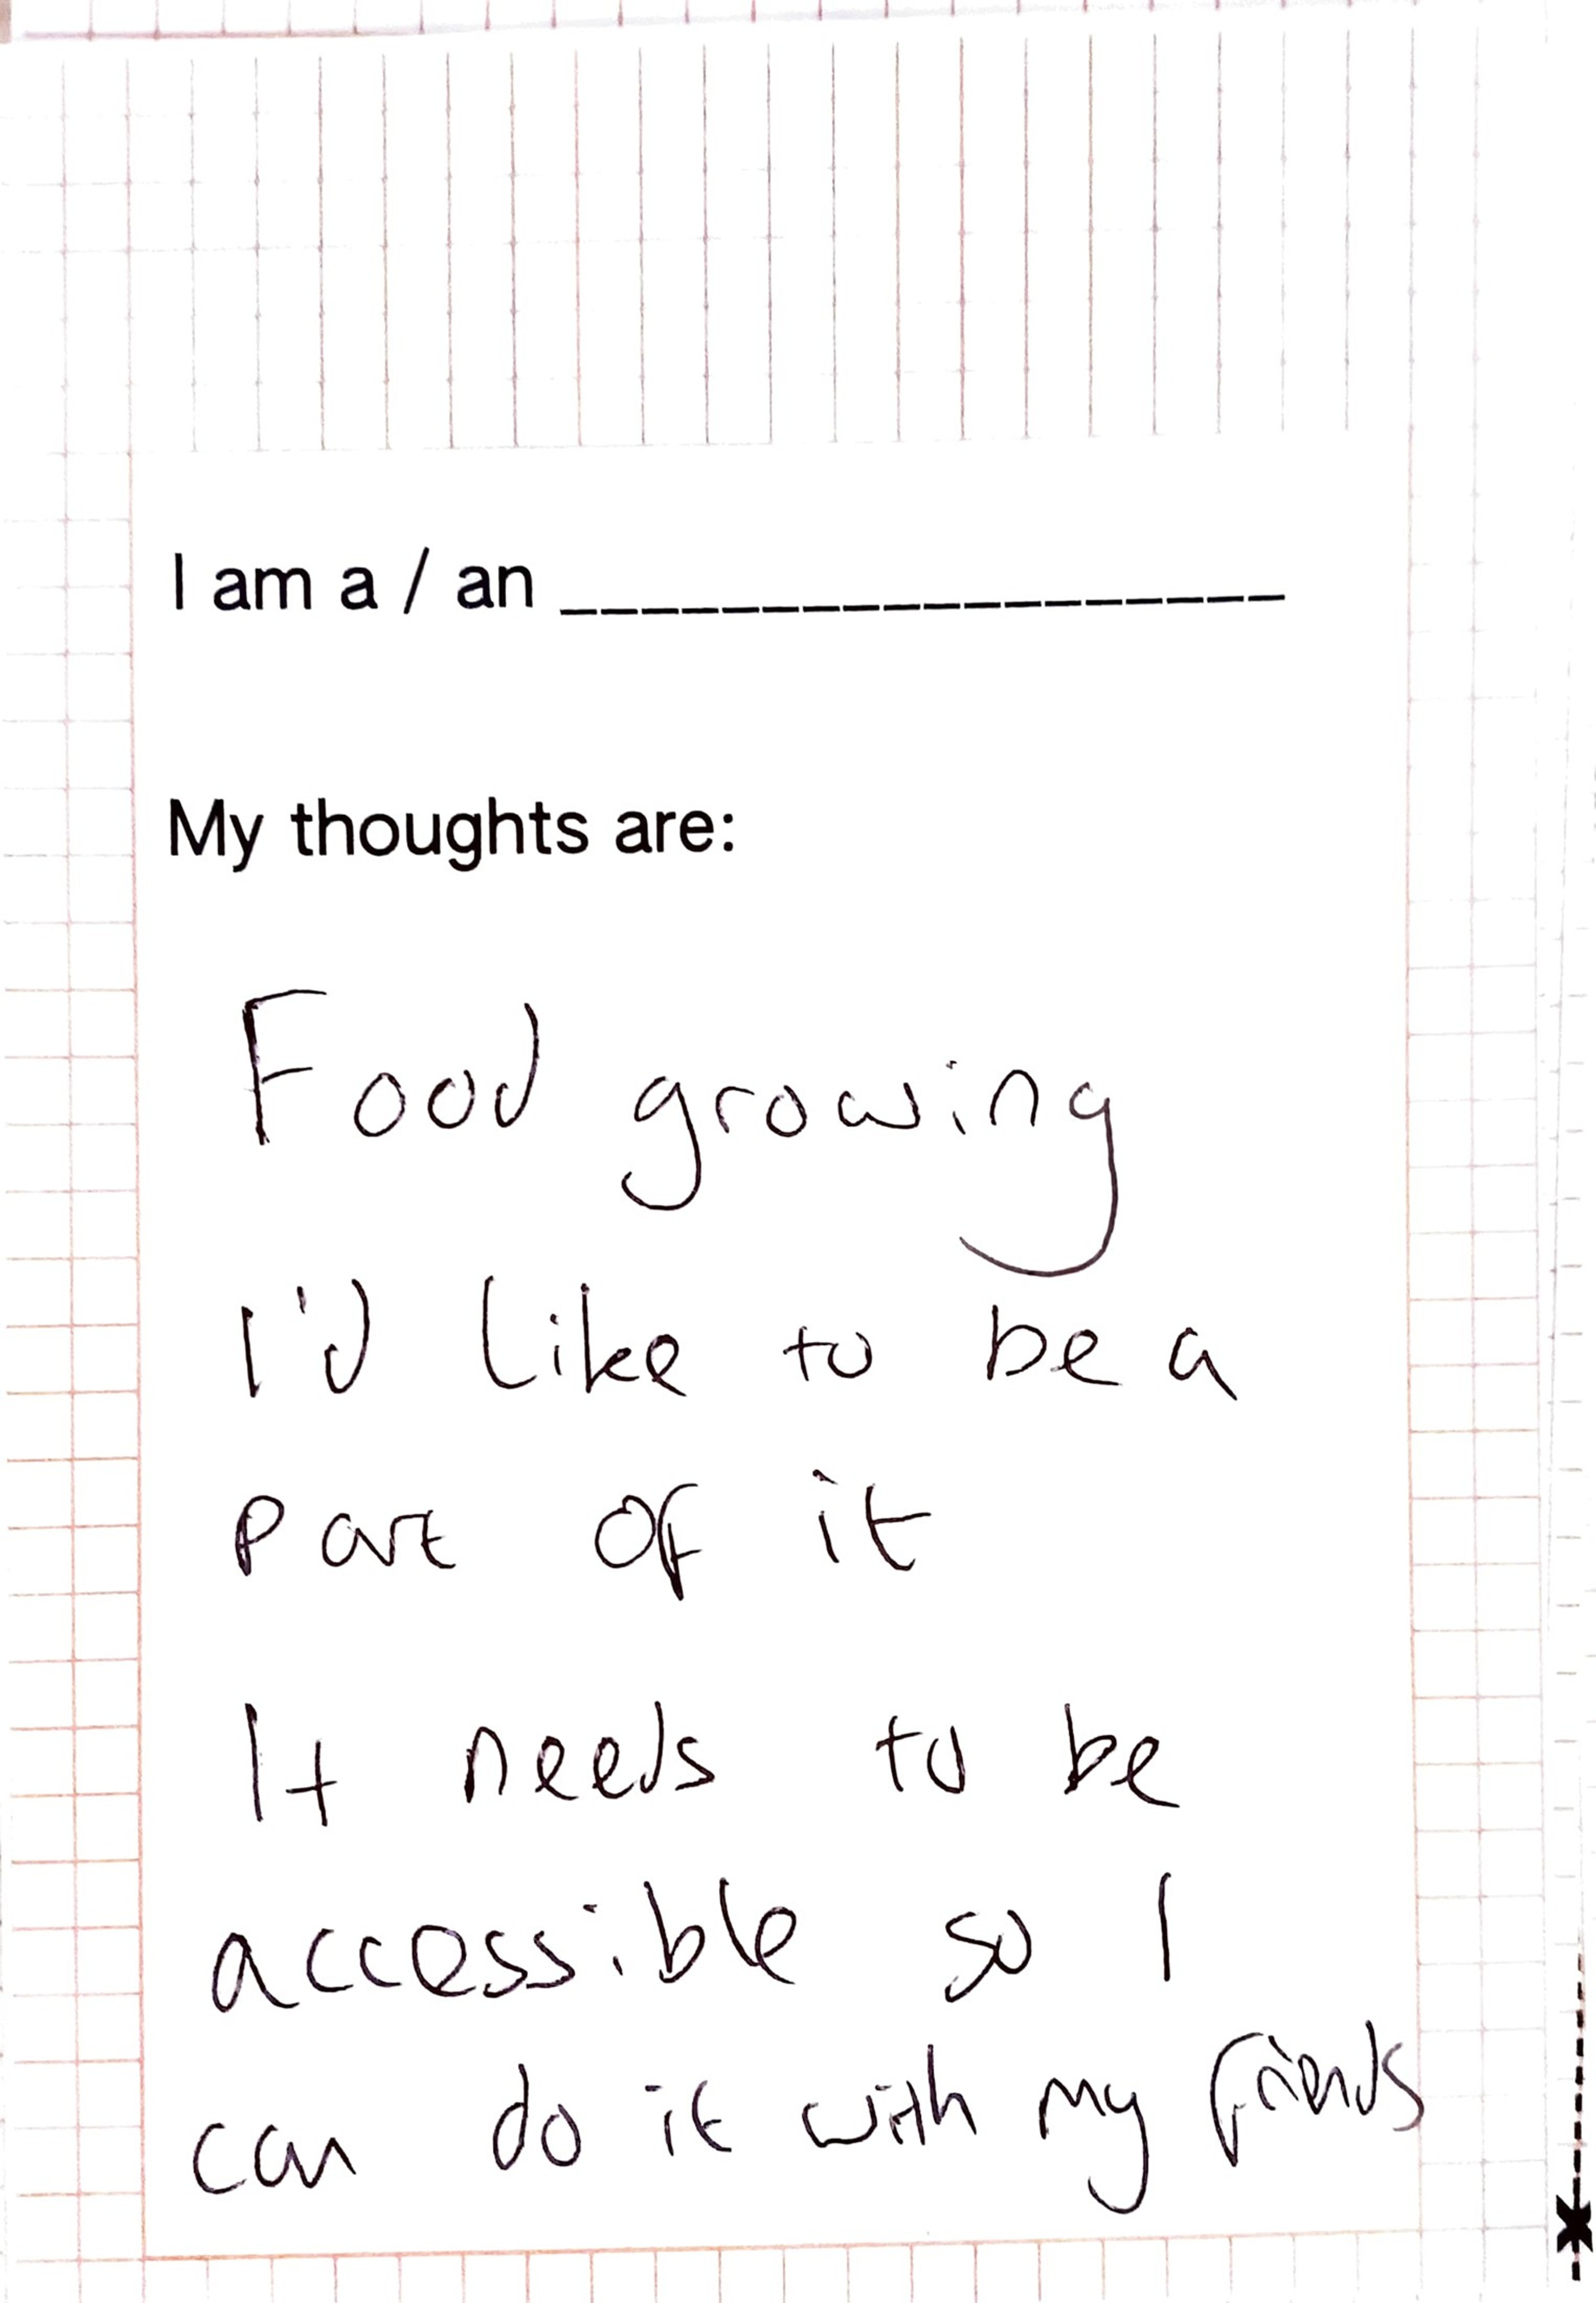 I am a / an __________________
My thoughts are:
Food growing
I'd like to be a
part of it
It needs to be
accessible so I
can do it with my friends